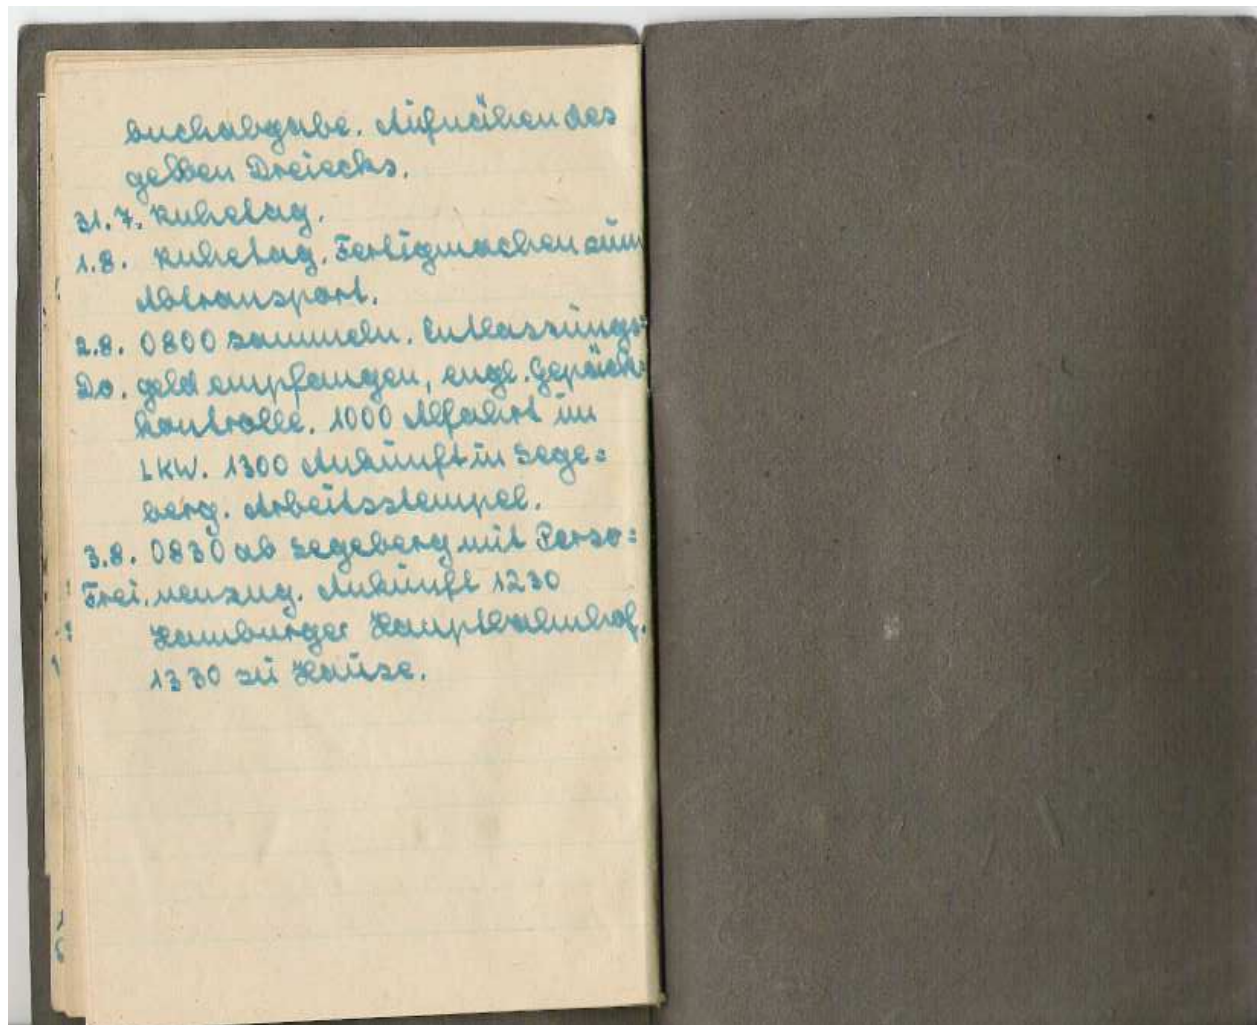 buchabgabe. Aufnähen des
gelben Dreiecks.
31.7. Ruhetag.
1.8. Ruhetag. Fertigmachen zum
Abtransport.
2.8. 0800 Sammeln. Entlassungs=
Do. geld empfangen, engl. Gepäck=
kontrolle. 1000 Abfahrt im
LKW. 1300 Ankunft in Sege=
berg. Arbeitsstempel.
3.8. 0830 ab Segeberg mit Perso=
Frei. nenzug. Ankunft 1230
Hamburger Hauptbahnhof.
1330 zu Hause.